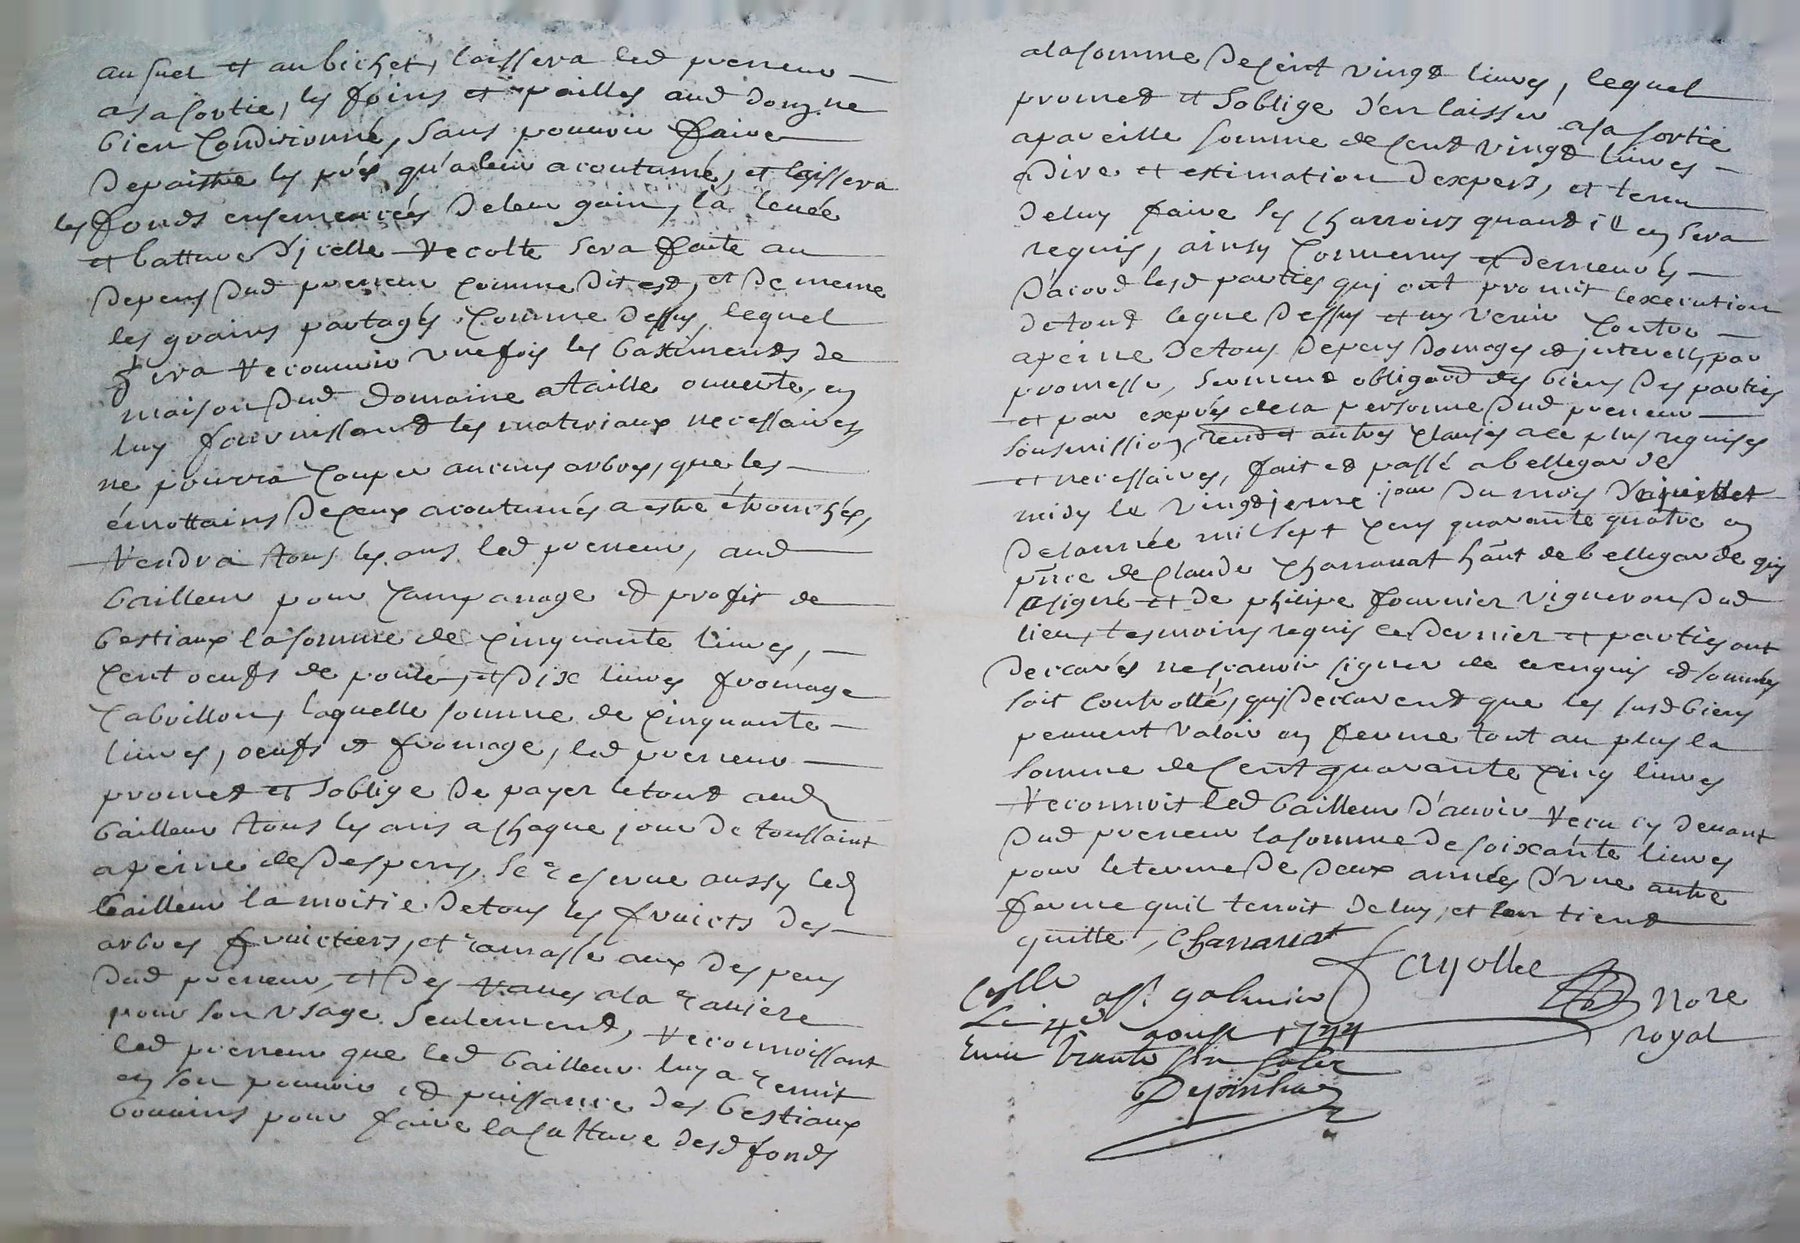 au suel et au bichet, laissera led preneur
a sa sortie, les foins et pailles aud domne
bien conditionné, sans pouvoir faire
depaistre les prés qu'a leur acoutumé, et laissera
les fonds ensemencés de leur gain, la levée
et batture d'icelle recolte sera faite au
depens dud preneur comme dit est, et de meme
les grains partagés comme dessus, lequel
fera recouvrir une fois les bastiments de
maison dud domaine a taille ouverte, en
luy fournissant les materiaux necessaires
ne pourra couper aucuns arbres, que les
émottains de ceux acoutumés a estre ébranchés,
rendra tous les ans led preneur, aud
bailleur pour campanage et profit de
bestiaux la somme de cinquante livres,
cent oeufs de poule, et dix livres fromage
cabrillon, laquelle somme de cinquante
livres, oeufs et fromage, led preneur
promet et s'oblige de payer le tout aud
bailleur tous les ans a chaque jour de toussaint
a peine des despens, se reserve aussy led
bailleur la moitié de tous les fruicts des
arbres fruictiers, et ramassés aux despens
dud preneur, et des raves a la raviere
pour son usage seulement, reconnoissant
led preneur que led bailleur luy a remit
en son pouvoir et puissance des bestiaux
bouvins pour faire la culture desd fonds
a la somme de cent vingt livres, lequel
promet et s'oblige d'en laisser a sa sortie
a pareille somme de cent vingt livres
a dire et estimation d'expers, et tenu
de luy faire les charroirs quand il en sera
requis, ainsy convenus et demeurés
d'acord lesd parties qui ont promit l'execution
de tout ce que dessus et ny venir contre
a peine de tous depens domages et interests, par
promesse, serment obligaon des biens des parties
et par exprés de la personne dud preneur
soumission, renon et autres clauses a ce plus requises
et necessaires, fait et passé a bellegarde
midy le vingtieme jour du mois de juillet
de l'année mil sept cens quarante quatre en
pnce de claude charravat hânt de bellegarde qui
a signé et de philipe fournier vigneron dud
lieu, tesmoins requis ce dernier et parties ont
declarés ne sçavoir signer de ce enquis et sommés
soit controllé, qui declarent que les susd biens
peuvent valoir en ferme tout au plus la
somme de cent quarante cinq livres
reconnoit led bailleur d'avoir recu cy devant
dud preneur la somme de soixante livres
pour le terme de deux années d'une autre
ferme qu'il tenoit de luy, et l'en tient
quitte, Charravat
Fayolle
Nore
royal
Collé a St galmier
Le 4e aoust 1744